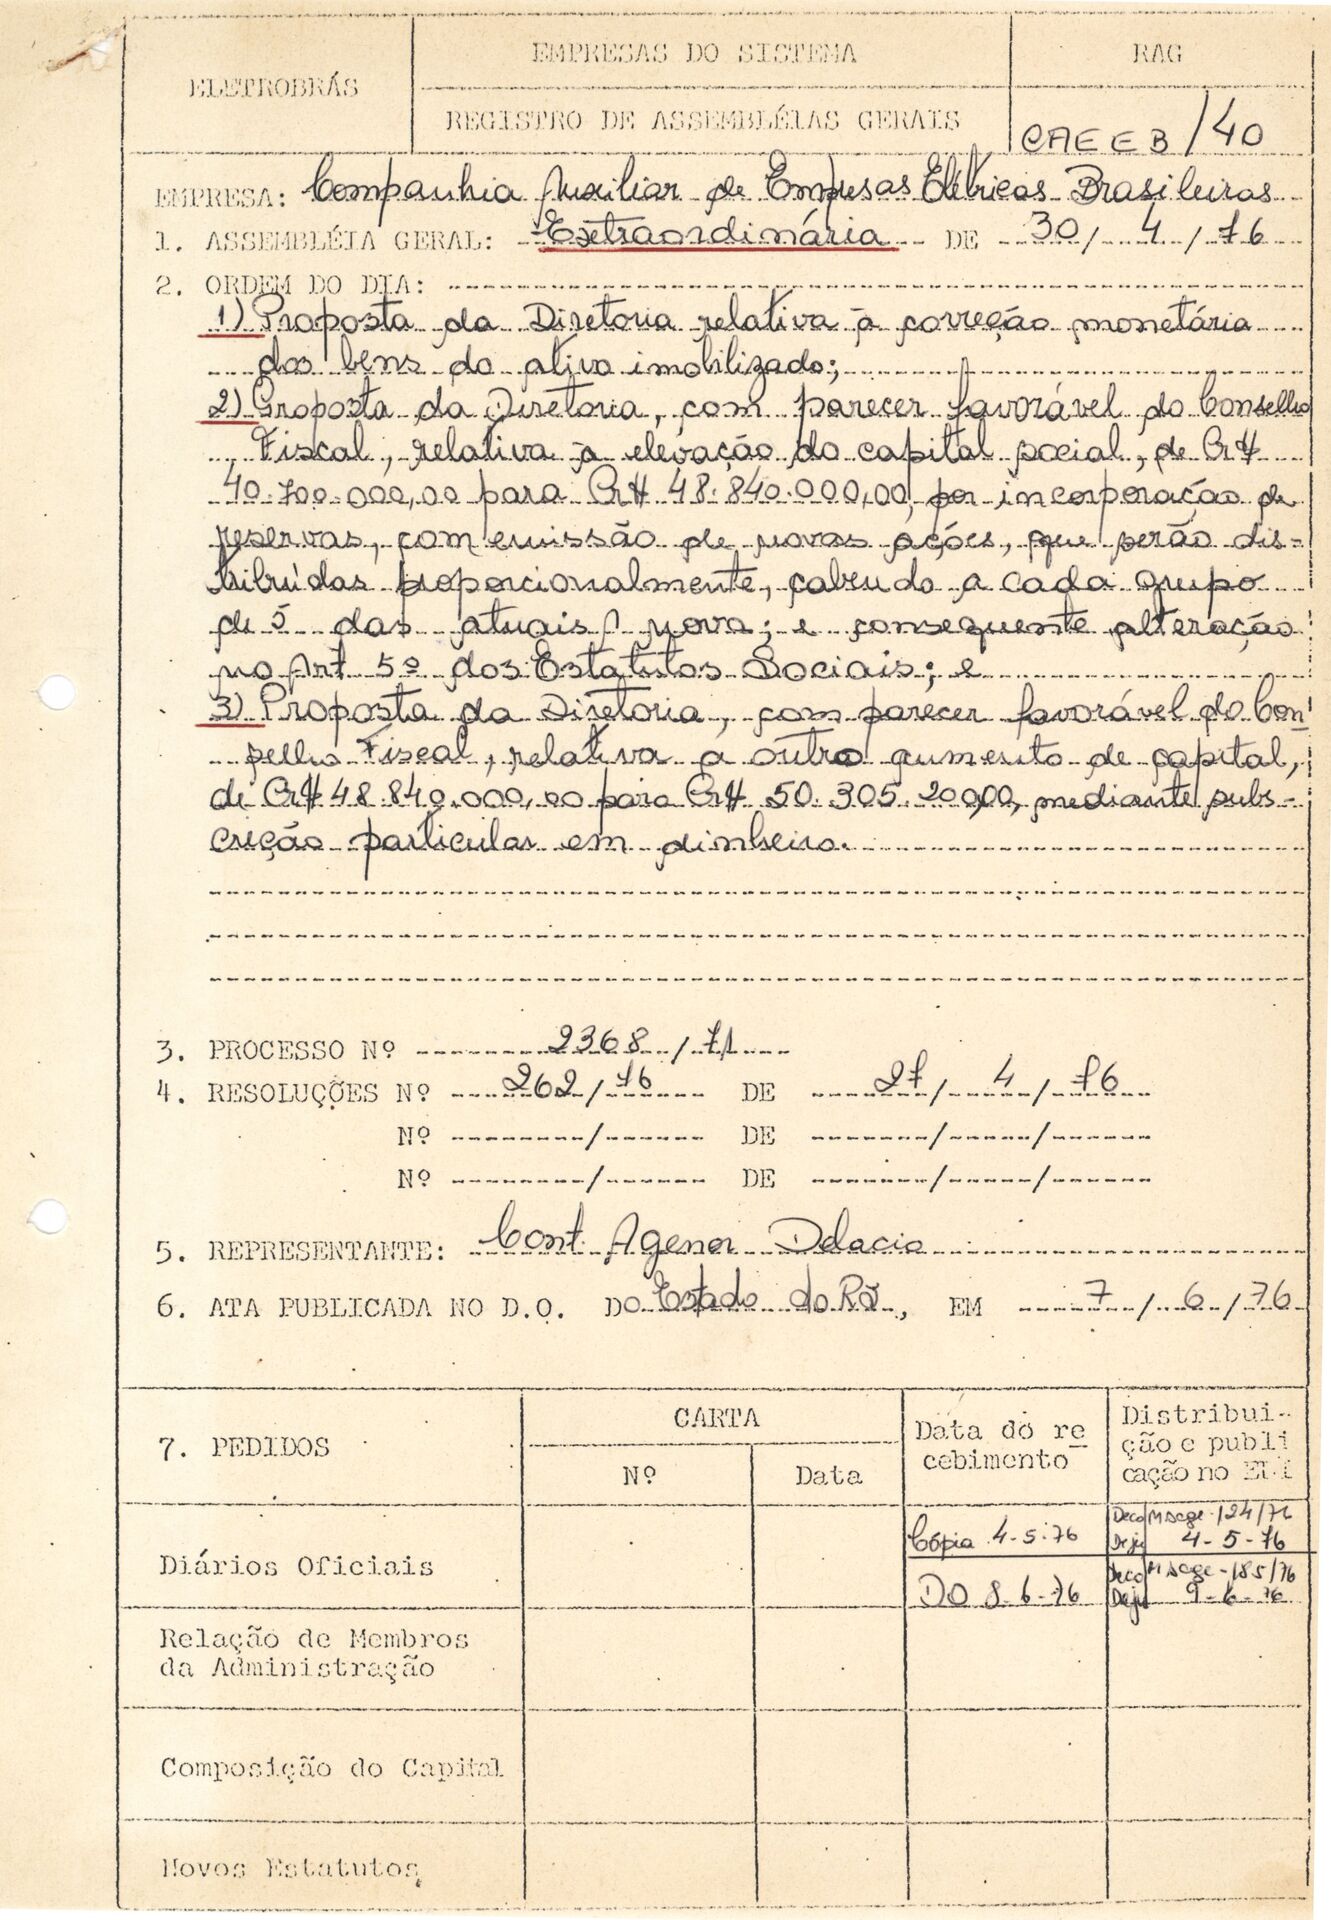 ELETROBRÁS
EMPRESAS DO SISTEMA
REGISTRO DE ASSEMBLÉIAS GERAIS
RAG
CAEEB/40
EMPRESA: Companhia Auxiliar de Empresas Elétricas Brasileiras
1. ASSEMBLÉIA GERAL: Extraordinária DE 30/4/76
2. ORDEM DO DIA:
1) Proposta da Diretoria relativa à correção monetária
dos bens do ativo imobilizado;
2) Proposta da Diretoria, com parecer favorável do Conselho
Fiscal, relativa à elevação do capital social, de Cr$
40.700.000,00 para Cr$ 48.840.000,00, por incorporação de
reservas, com emissão de novas ações, que serão dis-
tribuídas proporcionalmente, cabendo a cada grupo
de 5 das atuais 1 nova; e consequente alteração
no Art 5º dos Estatutos Sociais; e
3) Proposta da Diretoria, com parecer favorável do Con
selho Fiscal, relativa a outro aumento de capital,
de Cr$ 48.840.000,00 para Cr$ 50.305.200,00, mediante subs-
crição particular em dinheiro.
3. PROCESSO Nº 2368/71
4. RESOLUÇÕES Nº 262/76 DE 27/4/76
Nº / DE / /
Nº / DE / /
5. REPRESENTANTE: Cont. Agenor Delacio
6. ATA PUBLICADA NO D.O. DO Estado do RJ, EM 7/6/76
7. PEDIDOS
CARTA
Nº
Data
Data do re
cebimento
Distribui-
ção e publi
cação no
Diários Oficiais
Cópia 4-5-76
Deco Msage-124/76
Deju 4-5-76
DO 8-6-76
Deco Msage-185/76
Deju 9-6-76
Relação de Membros
da Administração
Composição do Capital
Novos Estatutos